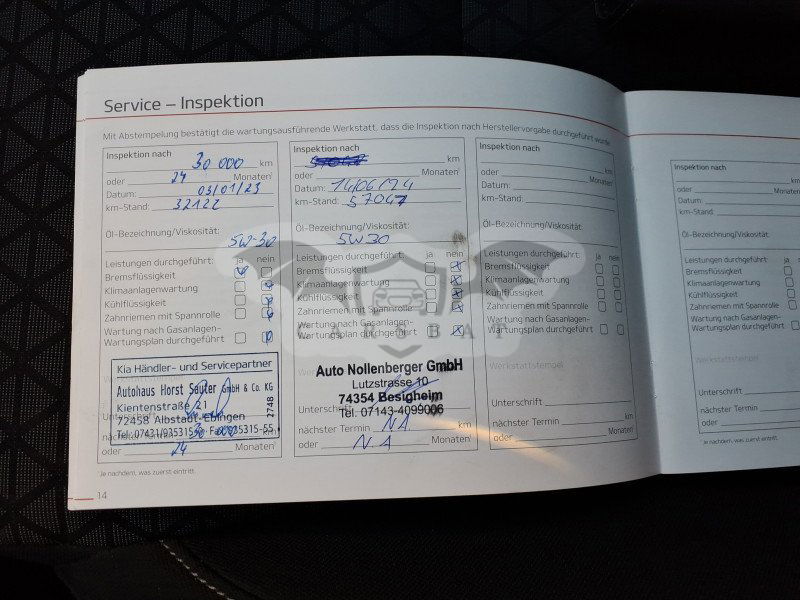 Service – Inspektion
Mit Abstempelung bestätigt die wartungsausführende Werkstatt, dass die Inspektion nach Herstellervorgabe durchgeführt wurde.
Inspektion nach 30 000 km
oder 24 Monaten¹
Datum: 03/01/23
km-Stand: 32122
Öl-Bezeichnung/Viskosität:
5W-30
Leistungen durchgeführt: ja nein
Bremsflüssigkeit
Klimaanlagenwartung
Kühlflüssigkeit
Zahnriemen mit Spannrolle
Wartung nach Gasanlagen-
Wartungsplan durchgeführt
Kia Händler- und Servicepartner
Autohaus Horst Sauter GmbH & Co. KG
Kientenstraße 21
72458 Albstadt-Ebingen
2748
30 000 km
oder 24 Monaten¹
Inspektion nach km
oder Monaten¹
Datum: 14/06/24
km-Stand: 57047
Öl-Bezeichnung/Viskosität:
5W30
Leistungen durchgeführt: ja nein
Bremsflüssigkeit
Klimaanlagenwartung
Kühlflüssigkeit
Zahnriemen mit Spannrolle
Wartung nach Gasanlagen-
Wartungsplan durchgeführt
Auto Nollenberger GmbH
Lutzstrasse 10
74354 Besigheim
Tel. 07143-4099006
Unterschrift
nächster Termin NA km
oder NA Monaten¹
Inspektion nach km
oder Monaten¹
Datum:
km-Stand:
Öl-Bezeichnung/Viskosität:
Leistungen durchgeführt: ja nein
Bremsflüssigkeit
Klimaanlagenwartung
Kühlflüssigkeit
Zahnriemen mit Spannrolle
Wartung nach Gasanlagen-
Wartungsplan durchgeführt
Werkstattstempel
Unterschrift
nächster Termin km
oder Monaten¹
¹Je nachdem, was zuerst eintritt.
14
Inspektion nach
oder
Datum:
km-Stand:
Öl-Bezeichnung/Viskosität:
Leistungen durchgeführt: ja
Bremsflüssigkeit
Klimaanlagenwartung
Kühlflüssigkeit
Zahnriemen mit Spannrolle
Wartung nach Gasanlagen-
Wartungsplan durchgeführt
Werkstattstempel
Unterschrift
nächster Termin
oder Monaten¹
¹Je nachdem, was zuerst eintritt.